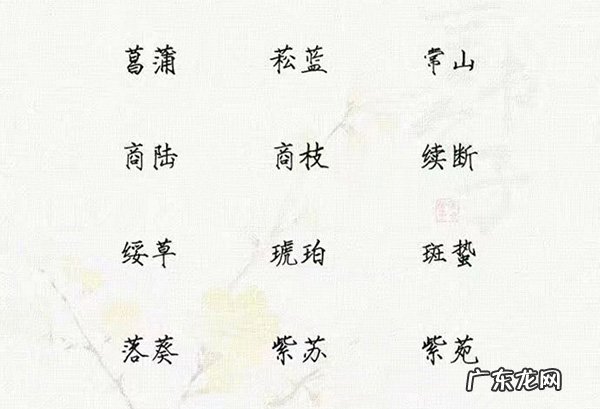 菖蒲 菘蓝 常山
商陆 商枝 续断
绥草 琥珀 斑蛰
落葵 紫苏 紫苑
广东龙网